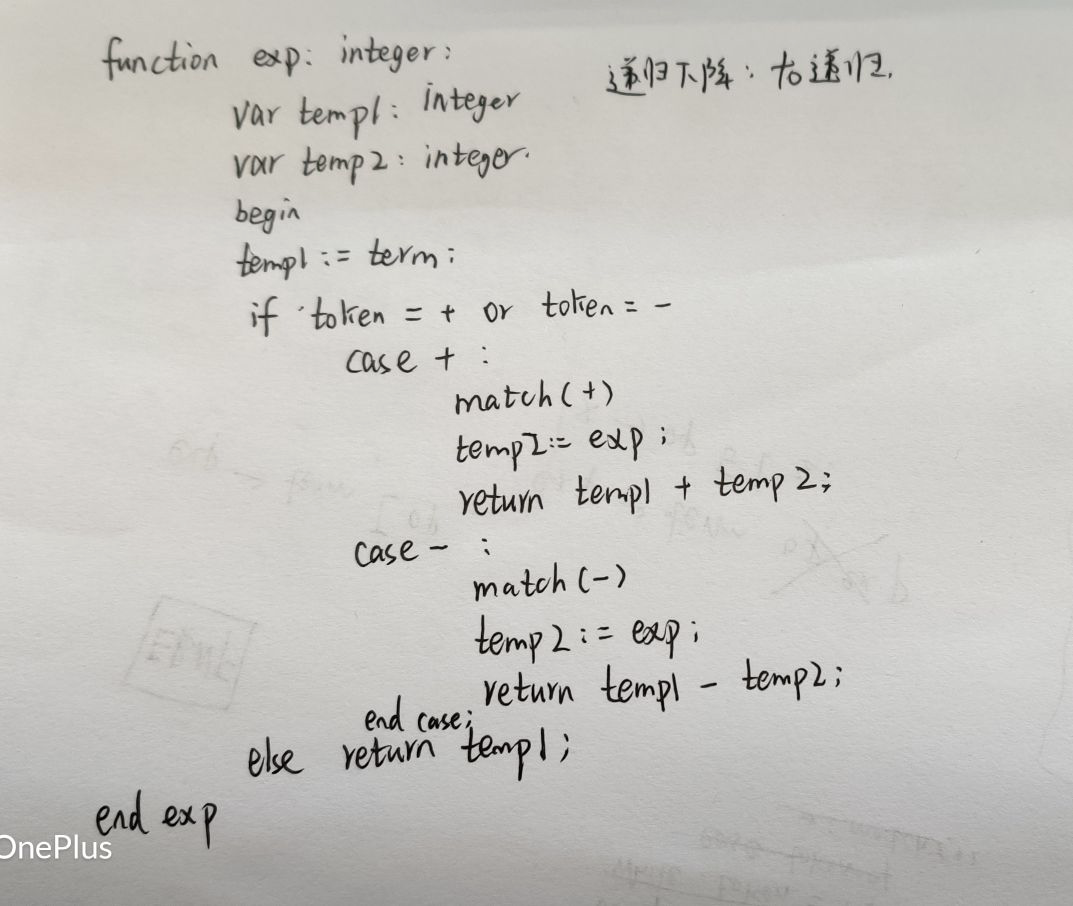 function exp: integer:
递归下降：右递归.
var temp1: integer
var temp2: integer.
begin
temp1 := term;
if token = + or token = -
case + :
match(+)
temp2:= exp;
return temp1 + temp2;
case - :
match(-)
temp2:= exp;
return temp1 - temp2;
end case;
else return temp1;
end exp
OnePlus